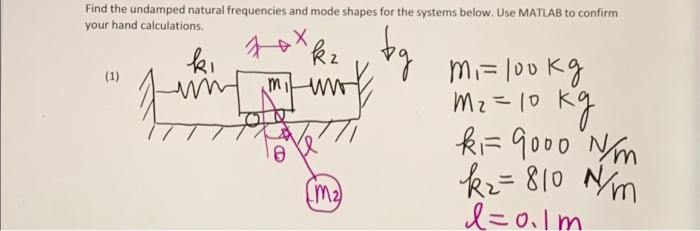 Find the undamped natural frequencies and mode shapes for the systems below. Use MATLAB to confirm
your hand calculations.
(1)
x
k1
k2
g
m1
θ
l
m2
m1=100 kg
m2=10 kg
k1=9000 N/m
k2=810 N/m
l=0.1m